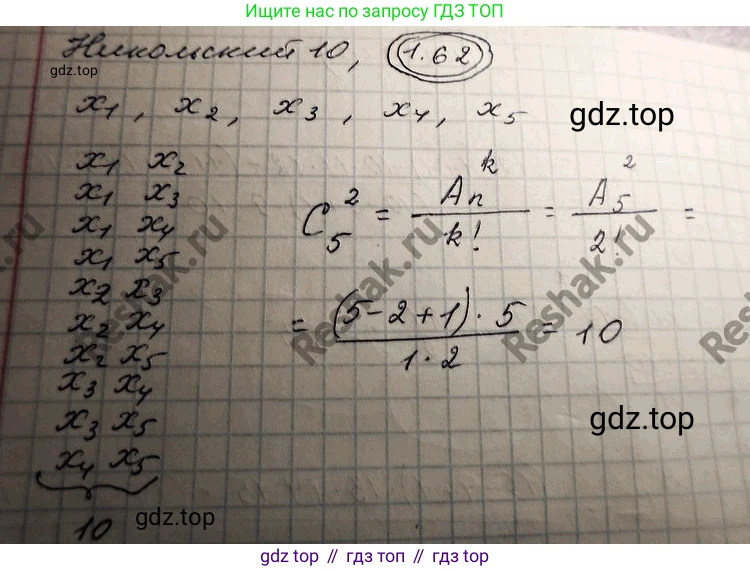 Ищите нас по запросу ГДЗ ТОП
Никольский 10, 1.62
gdz.top
x1, x2, x3, x4, x5
gdz.top
x1 x2
x1 x3
x1 x4
x1 x5
x2 x3
x2 x4
x2 x5
x3 x4
x3 x5
x4 x5
10
C₅² = Aₙᵏ / k! = A₅² / 2! =
= (5-2+1)·5 / 1·2 = 10
Reshak.ru
Reshak.ru
Reshak.ru
Reshak.ru
gdz.top
gdz.top
gdz top // гдз топ // gdz top